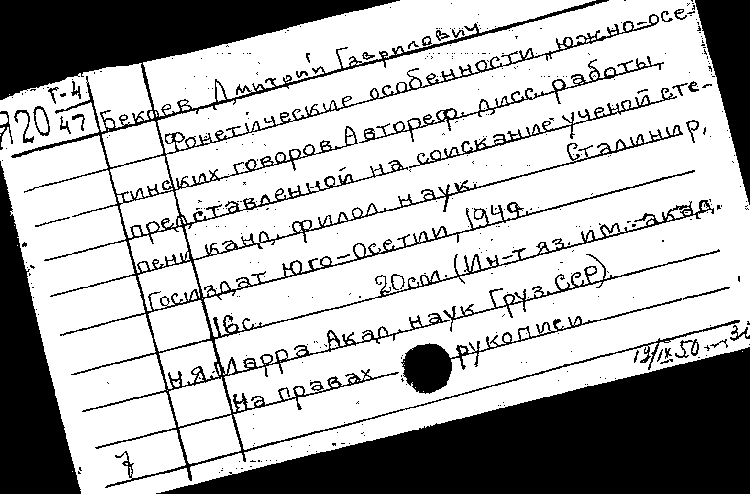 Я20 Г-4/47
Бекоев, Дмитрий Гаврилович
Фонетические особенности южно-осе-
тинских говоров. Автореф. дисс. работы,
представленной на соискание ученой сте-
пени канд. филол. наук. Сталинир,
Госиздат Юго-Осетии, 1949.
16с. 20см. (Ин-т яз. им. акад.
Н.Я. Марра Акад. наук Груз. ССР).
На правах рукописи.